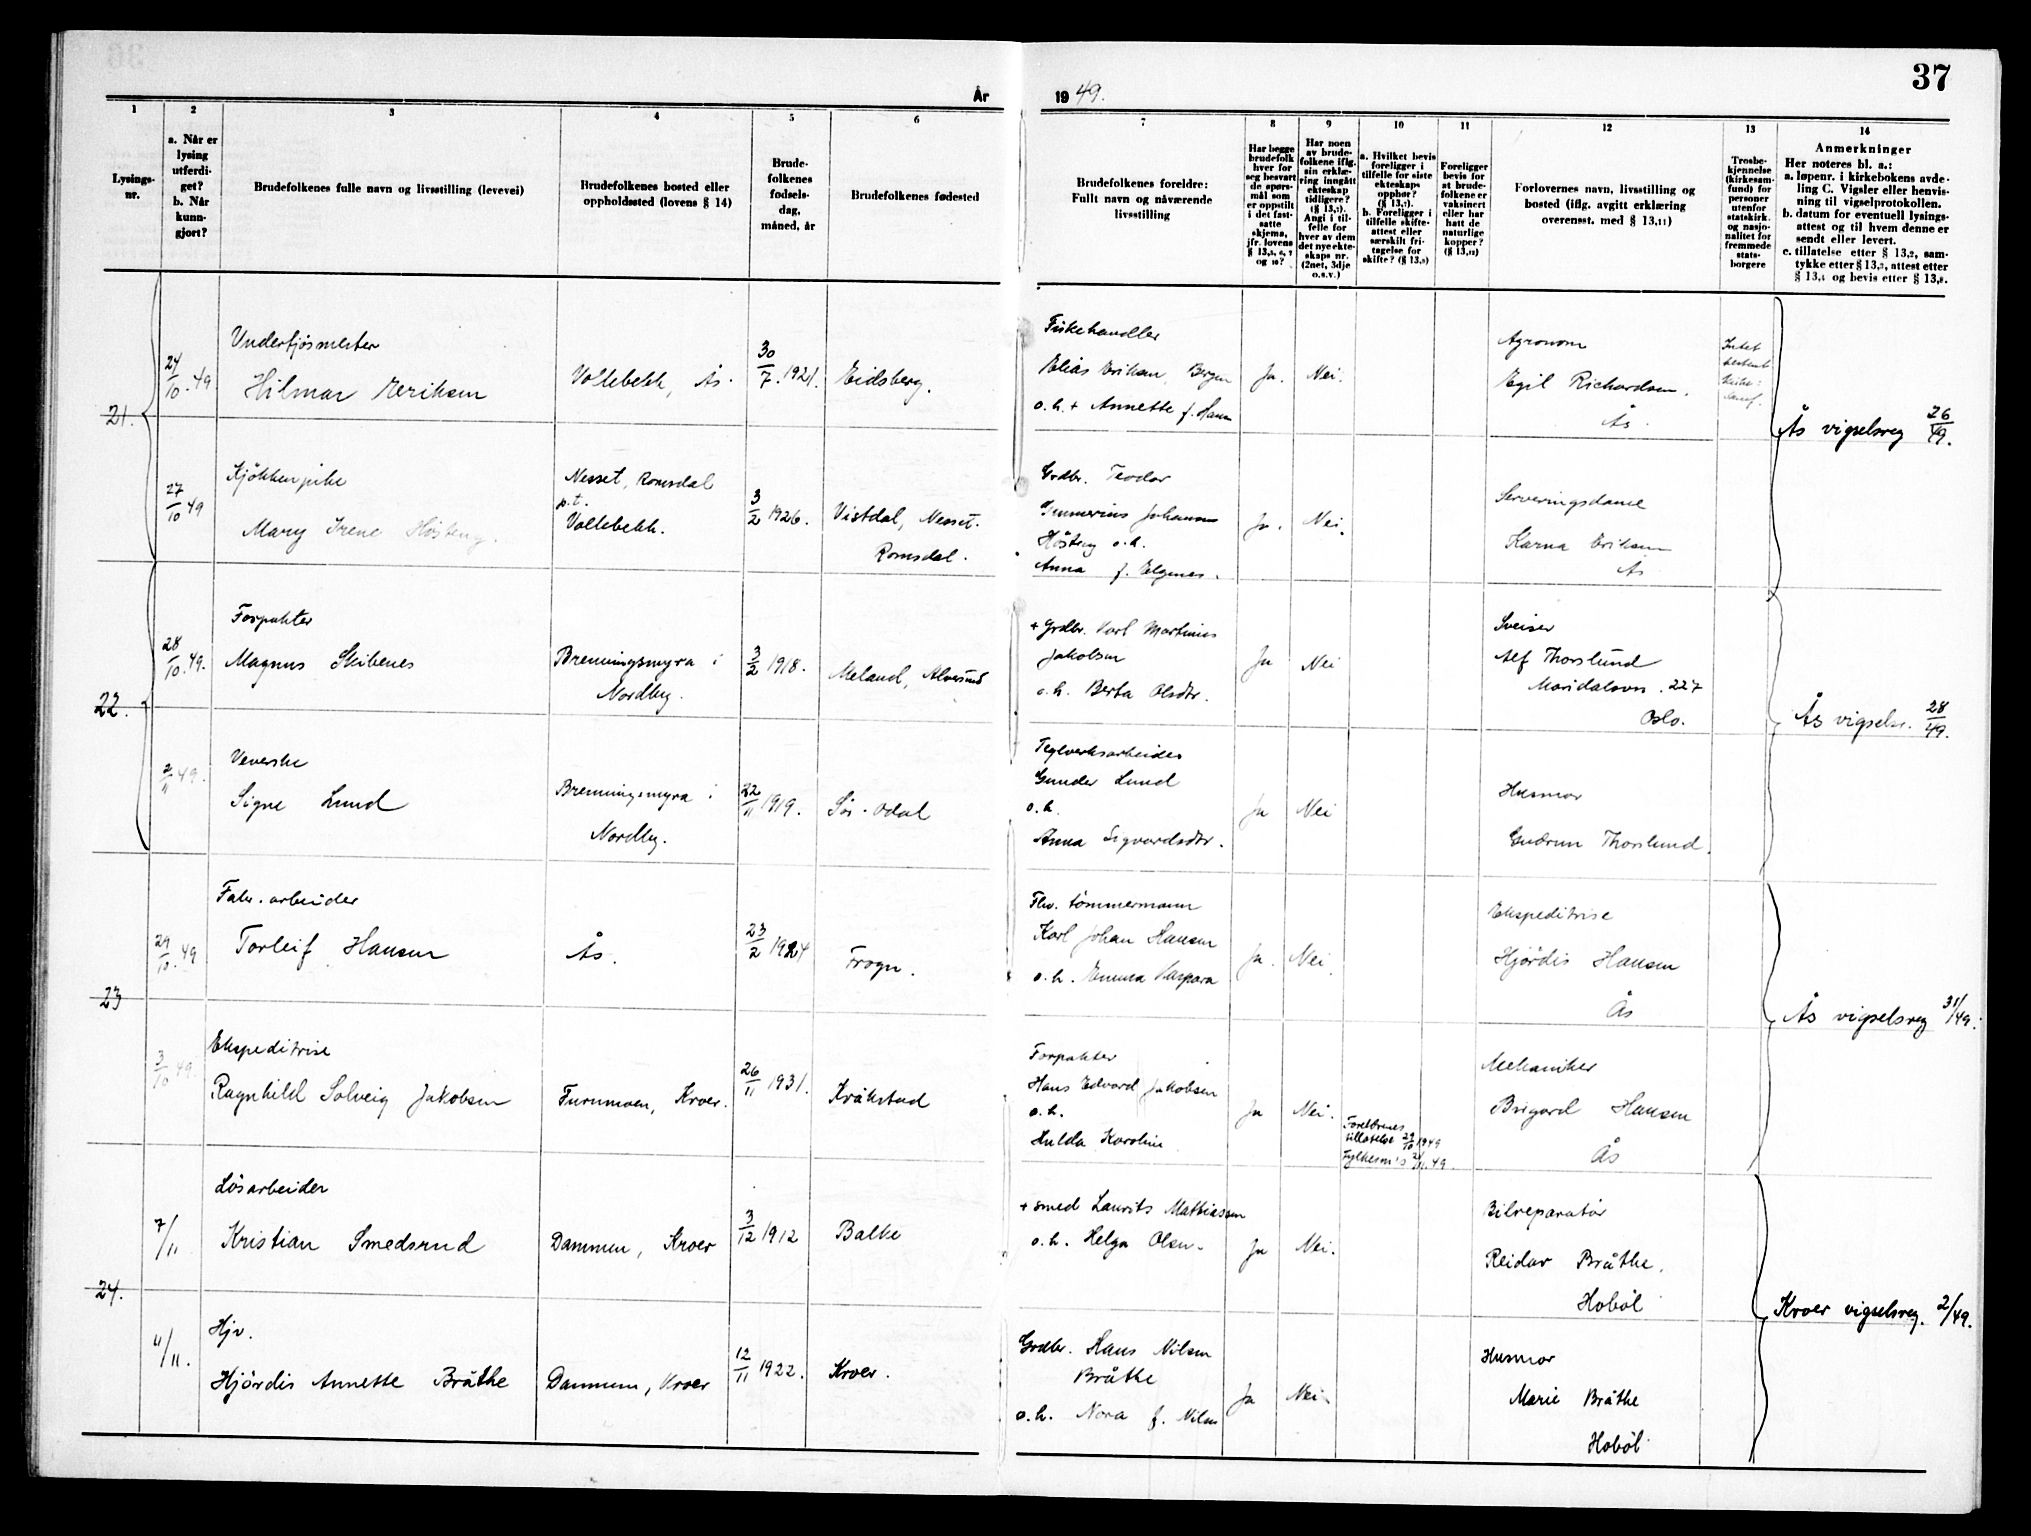 37
År
19 49.
1
2
3
4
5
6
7
8
9
10
11
12
13
14
Lysings-
nr.
a. Når er
lysing
utferdi-
get?
b. Når
kunn-
gjort?
Brudefolkenes fulle navn og livsstilling (levevei)
Brudefolkenes bosted eller
oppholdssted (lovens § 14)
Brude-
folkenes
fødsels-
dag,
måned, år
Brudefolkenes fødested
Brudefolkenes foreldre:
Fullt navn og nåværende
livsstilling
Har begge
brudefolk
hver for
seg besvart
de spørs-
mål som
er oppstilt
i det fast-
satte
skjema,
jfr. lovens
§ 13,5, 6, 7
og 10?
Har noen
av brude-
folkene iflg.
sin erklæ-
ring inngått
ekteskap
tidligere?
(§ 13,7).
Angi i til-
felle for
hver av dem
det nye ekte-
skaps nr.
(2net, 3dje
o.s.v.)
a. Hvilket bevis
foreligger i
tilfelle for siste
ekteskaps
opphør?
(§ 13,7).
b. Foreligger i
tilfelle skifte-
attest eller
særskilt fri-
tagelse for
skifte? (§ 13,9)
Foreligger
bevis for
at brude-
folkene er
vaksinert
eller har
hatt de
naturlige
kopper?
(§ 13,12)
Forlovernes navn, livsstilling og
bosted (iflg. avgitt erklæring
overensst. med § 13,11)
Trosbe-
kjennelse
(kirkesam-
fund) for
personer
utenfor
statskirk.
og nasjo-
nalitet for
fremmede
stats-
borgere
Anmerkninger
Her noteres bl. a.:
a. løpenr. i kirkebokens avde-
ling C. Vigsler eller henvis-
ning til vigselprotokollen.
b. datum for eventuell lysings-
attest og til hvem denne er
sendt eller levert.
c. tillatelse etter § 13,2, sam-
tykke etter § 13,3, attest etter
§ 13,4 og bevis etter § 13,8.
21.
24/10.49
Underfjøsmester
Hilmar Eeriksen
Vollebekk, Ås.
30/7.1921.
Eidsberg.
Fiskehandler
Elias Eriksen, Bergen
o.h. + Annette f. Hansen
Ja.
Nei.
Agronom
Egil Richardsen.
Ås
Intet
bestemt
Ås vigselsreg 26/49.
27/10 49
Kjøkkenpike
Mary Irene Høsteng.
Nesset, Romsdal
p.t.
Vollebekk.
3/2 1926.
Vistdal, Nesset.
Romsdal.
Grdbr. Teodor
Johannes
o.h.
Anna f. Elgenes.
Ja.
Nei.
Serveringsdame
Karna Eriksen
Ås
22.
28/10.49.
Forpakter
Magnus Skibenes
Brenningsmyra i
Nordby.
3/2 1918.
Meland, Alversund
+ Grdbr. Karl Martinius
Jakobsen
o.h. Berta Olsdtr.
Ja
Nei
Sveiser
Alf Thorslund
Maridalsvn. 227
Oslo.
Ås vigselsr. 28/49.
2/11 49.
Veverske
Signe Lund
Brenningsmyra i
Nordby.
22/11 1919.
Sør-Odal
Teglverksarbeider
Gunder Lund
o.h.
Anna Sigvardsdtr.
Ja
Nei
Husmor
Gudrun Thorslund.
23
29/10.49
Fabr. arbeider
Torleif Hansen
Ås.
23/2 1924
Frogn.
Fhv. tømmermann
Karl Johan Hansen
o.h. Emma Kaspara
Ja.
Nei.
Ekspeditrise
Hjørdis Hansen
Ås
Ås vigselsreg 31/49.
3/10 49.
Ekspeditrise
Ragnhild Solveig Jakobsen
Furumoen, Kroer.
26/11 1931.
Kråkstad
Forpakter
Hans Edvard Jakobsen
o.h.
Hulda Karoline
Ja
Nei.
Foreldrenes
tillatelse 29/10 1949
Fylkesm's 2/11.49.
Mekaniker
Birgard Hansen
Ås
24.
7/11
Løsarbeider
Kristian Smedsrud
Dammen, Kroer
3/12 1912
Balke
+ smed Laurits Mathiassen
o.h. Helga Olsen.
Ja
Nei.
Bilreparatør
Reidar Bråthe.
Hobøl
Kroer vigselsreg. 2/49.
11/11.
Hjv.
Hjørdis Annette Bråthe
Dammen, Kroer
12/11 1922.
Kroer.
Grdbr. Hans Nilsen
Bråthe
o.h. Nora f. Nilsen
Ja
Nei
Husmor
Marie Bråthe
Hobøl